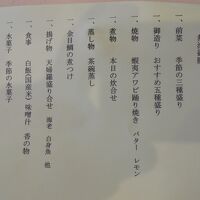 一、前菜　季節の三種盛り
一、御造り　おすすめ五種盛り
一、焼物　蝦夷アワビ踊り焼き　バター　レモン
一、煮物　本日の炊合せ
一、蒸し物　茶碗蒸し
一、金目鯛の煮つけ
一、揚げ物　天婦羅盛り合せ　海老　白身魚　他
一、食事　白飯(国産米)　味噌汁　香の物
一、水菓子　季節の水菓子